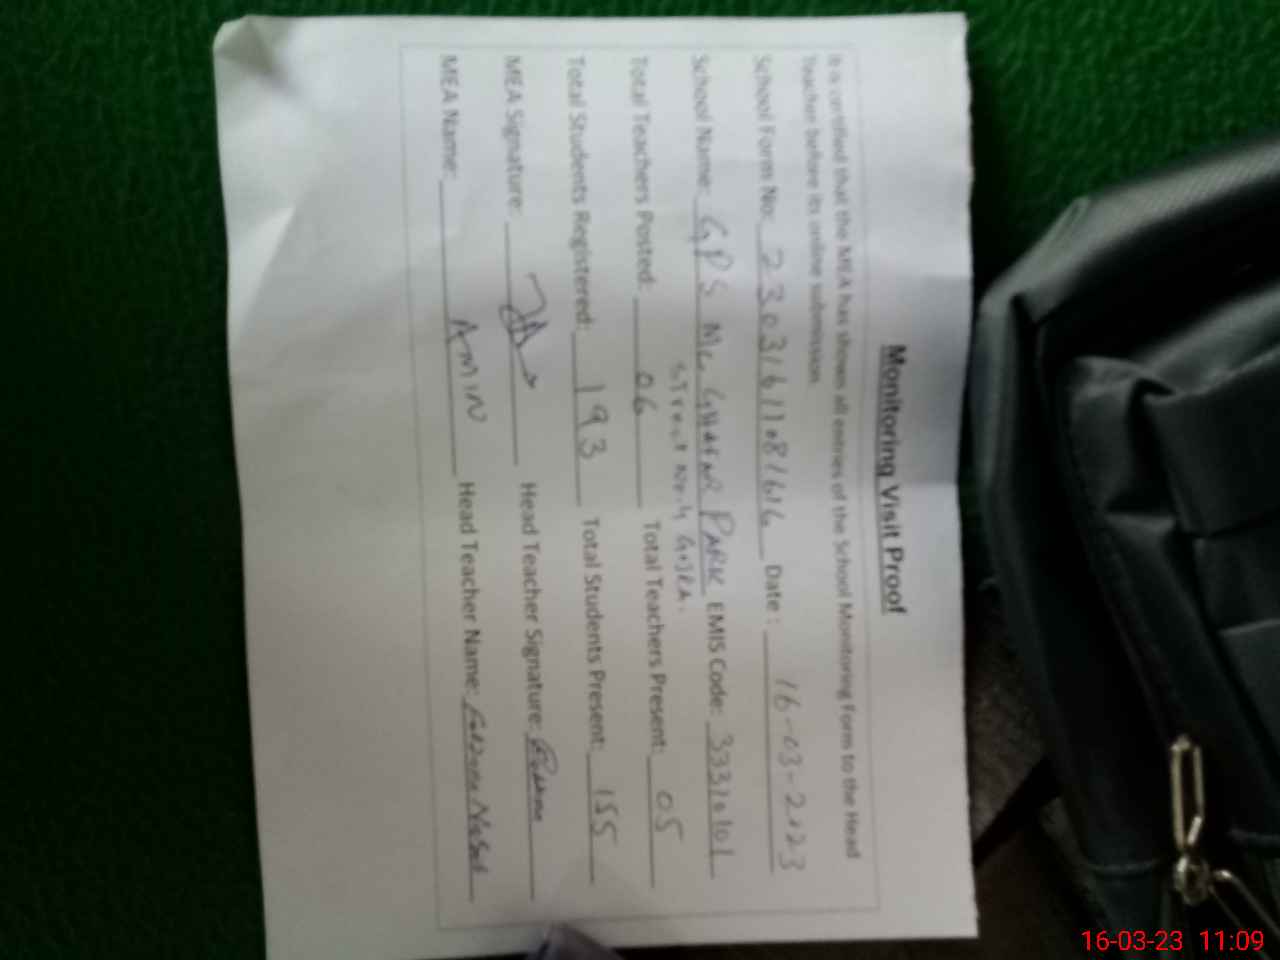 Monitoring Visit Proof
It is certified that the MEA has shown all entries of the School Monitoring Form to the Head
Teacher before its online submission.
School Form No: Date: 16-03-2023
School Name: GPS MC GHAFNR PARK EMIS Code: 33310101
Total Teachers Posted: 06 Total Teachers Present: 05
Total Students Registered: 193 Total Students Present: 155
MEA Signature: Head Teacher Signature:
MEA Name: AMIN Head Teacher Name:
16-03-23 11:09